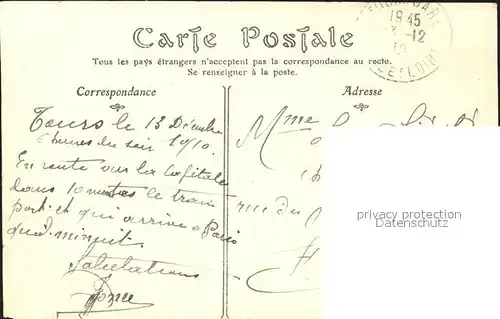 Carte Postale
Tous les pays étrangers n'acceptent pas la correspondance au recto.
Se renseigner à la poste.
Correspondance
Adresse
Tours le 13 Décembre
6 heures du soir 1910.
En route vers la Capitale
dans 10 minutes le train
part et qui arrive à Paris
qu'à minuit.
Salutations
18 45
-12
ET LOIRE
Mme
rue du
privacy protection
watermarks